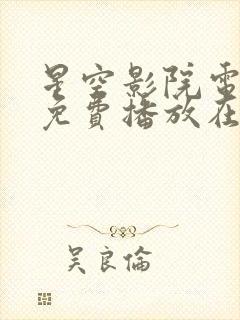 星空影院電
免費播放在
吳良倫